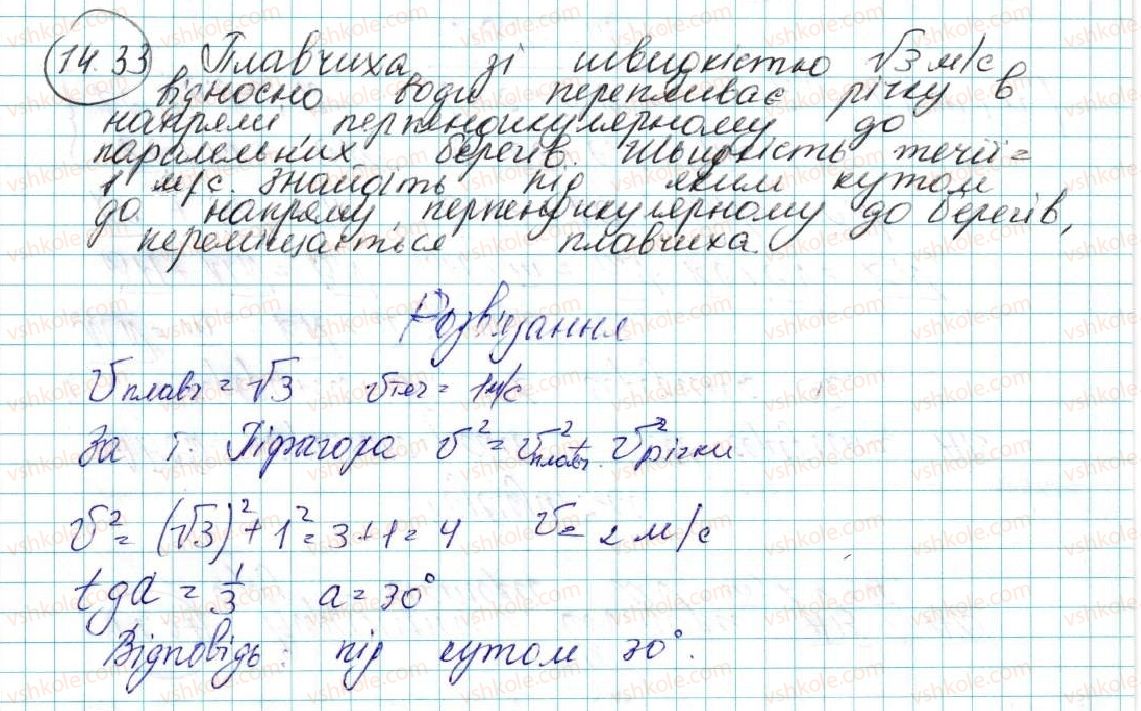 14.33 Плавчиха зі швидкістю √3 м/с
відносно води перепливає річку в
напрямі перпендикулярному до
паралельних берегів. Швидкість течії =
1 м/с. Знайдіть під яким кутом
до напряму, перпендикулярному до берегів,
переміщається плавчиха.
Розв'язання
υплавч = √3 υтеч = 1м/с
За т. Піфагора υ² = υ²плавч + υ²річки
υ² = (√3)² + 1² = 3 + 1 = 4 υ = 2 м/с
tg α = 1/3 α = 30°
Відповідь: під кутом 30°.